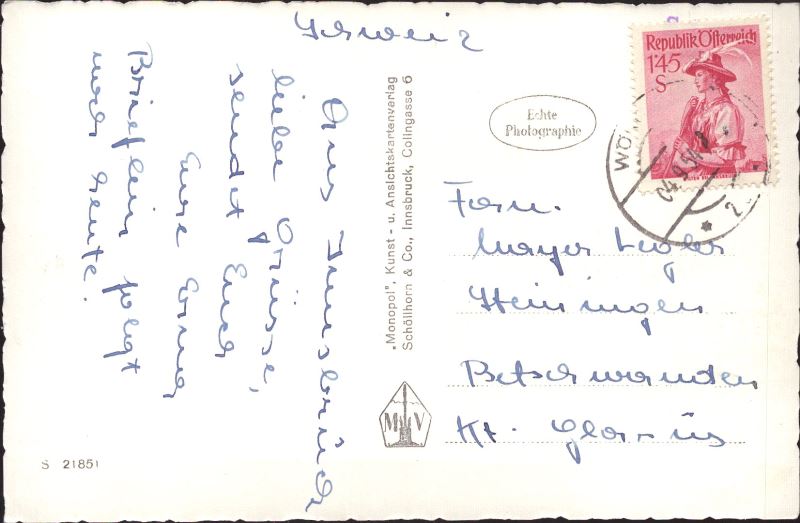 Schweiz
Republik Österreich
1'45
S
Echte
Photographie
WÖ
04.9.51
2
Aus Innsbruck
liebe Grüsse,
sendet Euch
Eure Erna
Brieflein folgt
noch heute.
„Monopol", Kunst - u. Ansichtskartenverlag
Schöllhorn & Co., Innsbruck, Colingasse 6
M V
Fam.
Mayer
Betschwanden
Kt. Glarus
S 21851